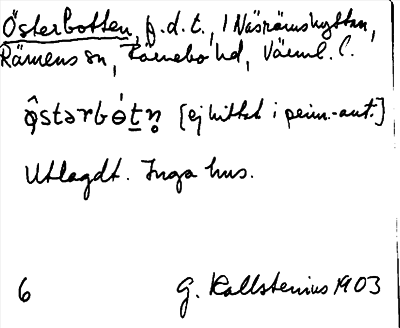 Österbotten, f.d.t., i Näsrämshyttan,
Rämens sn, Färnebo hd, Värml. l.
ǫ̂stərbɵ́tn̥ [ej hittat i prim.-ant.]
Utlagdt. Inga hus.
6 G. Kallstenius 1903